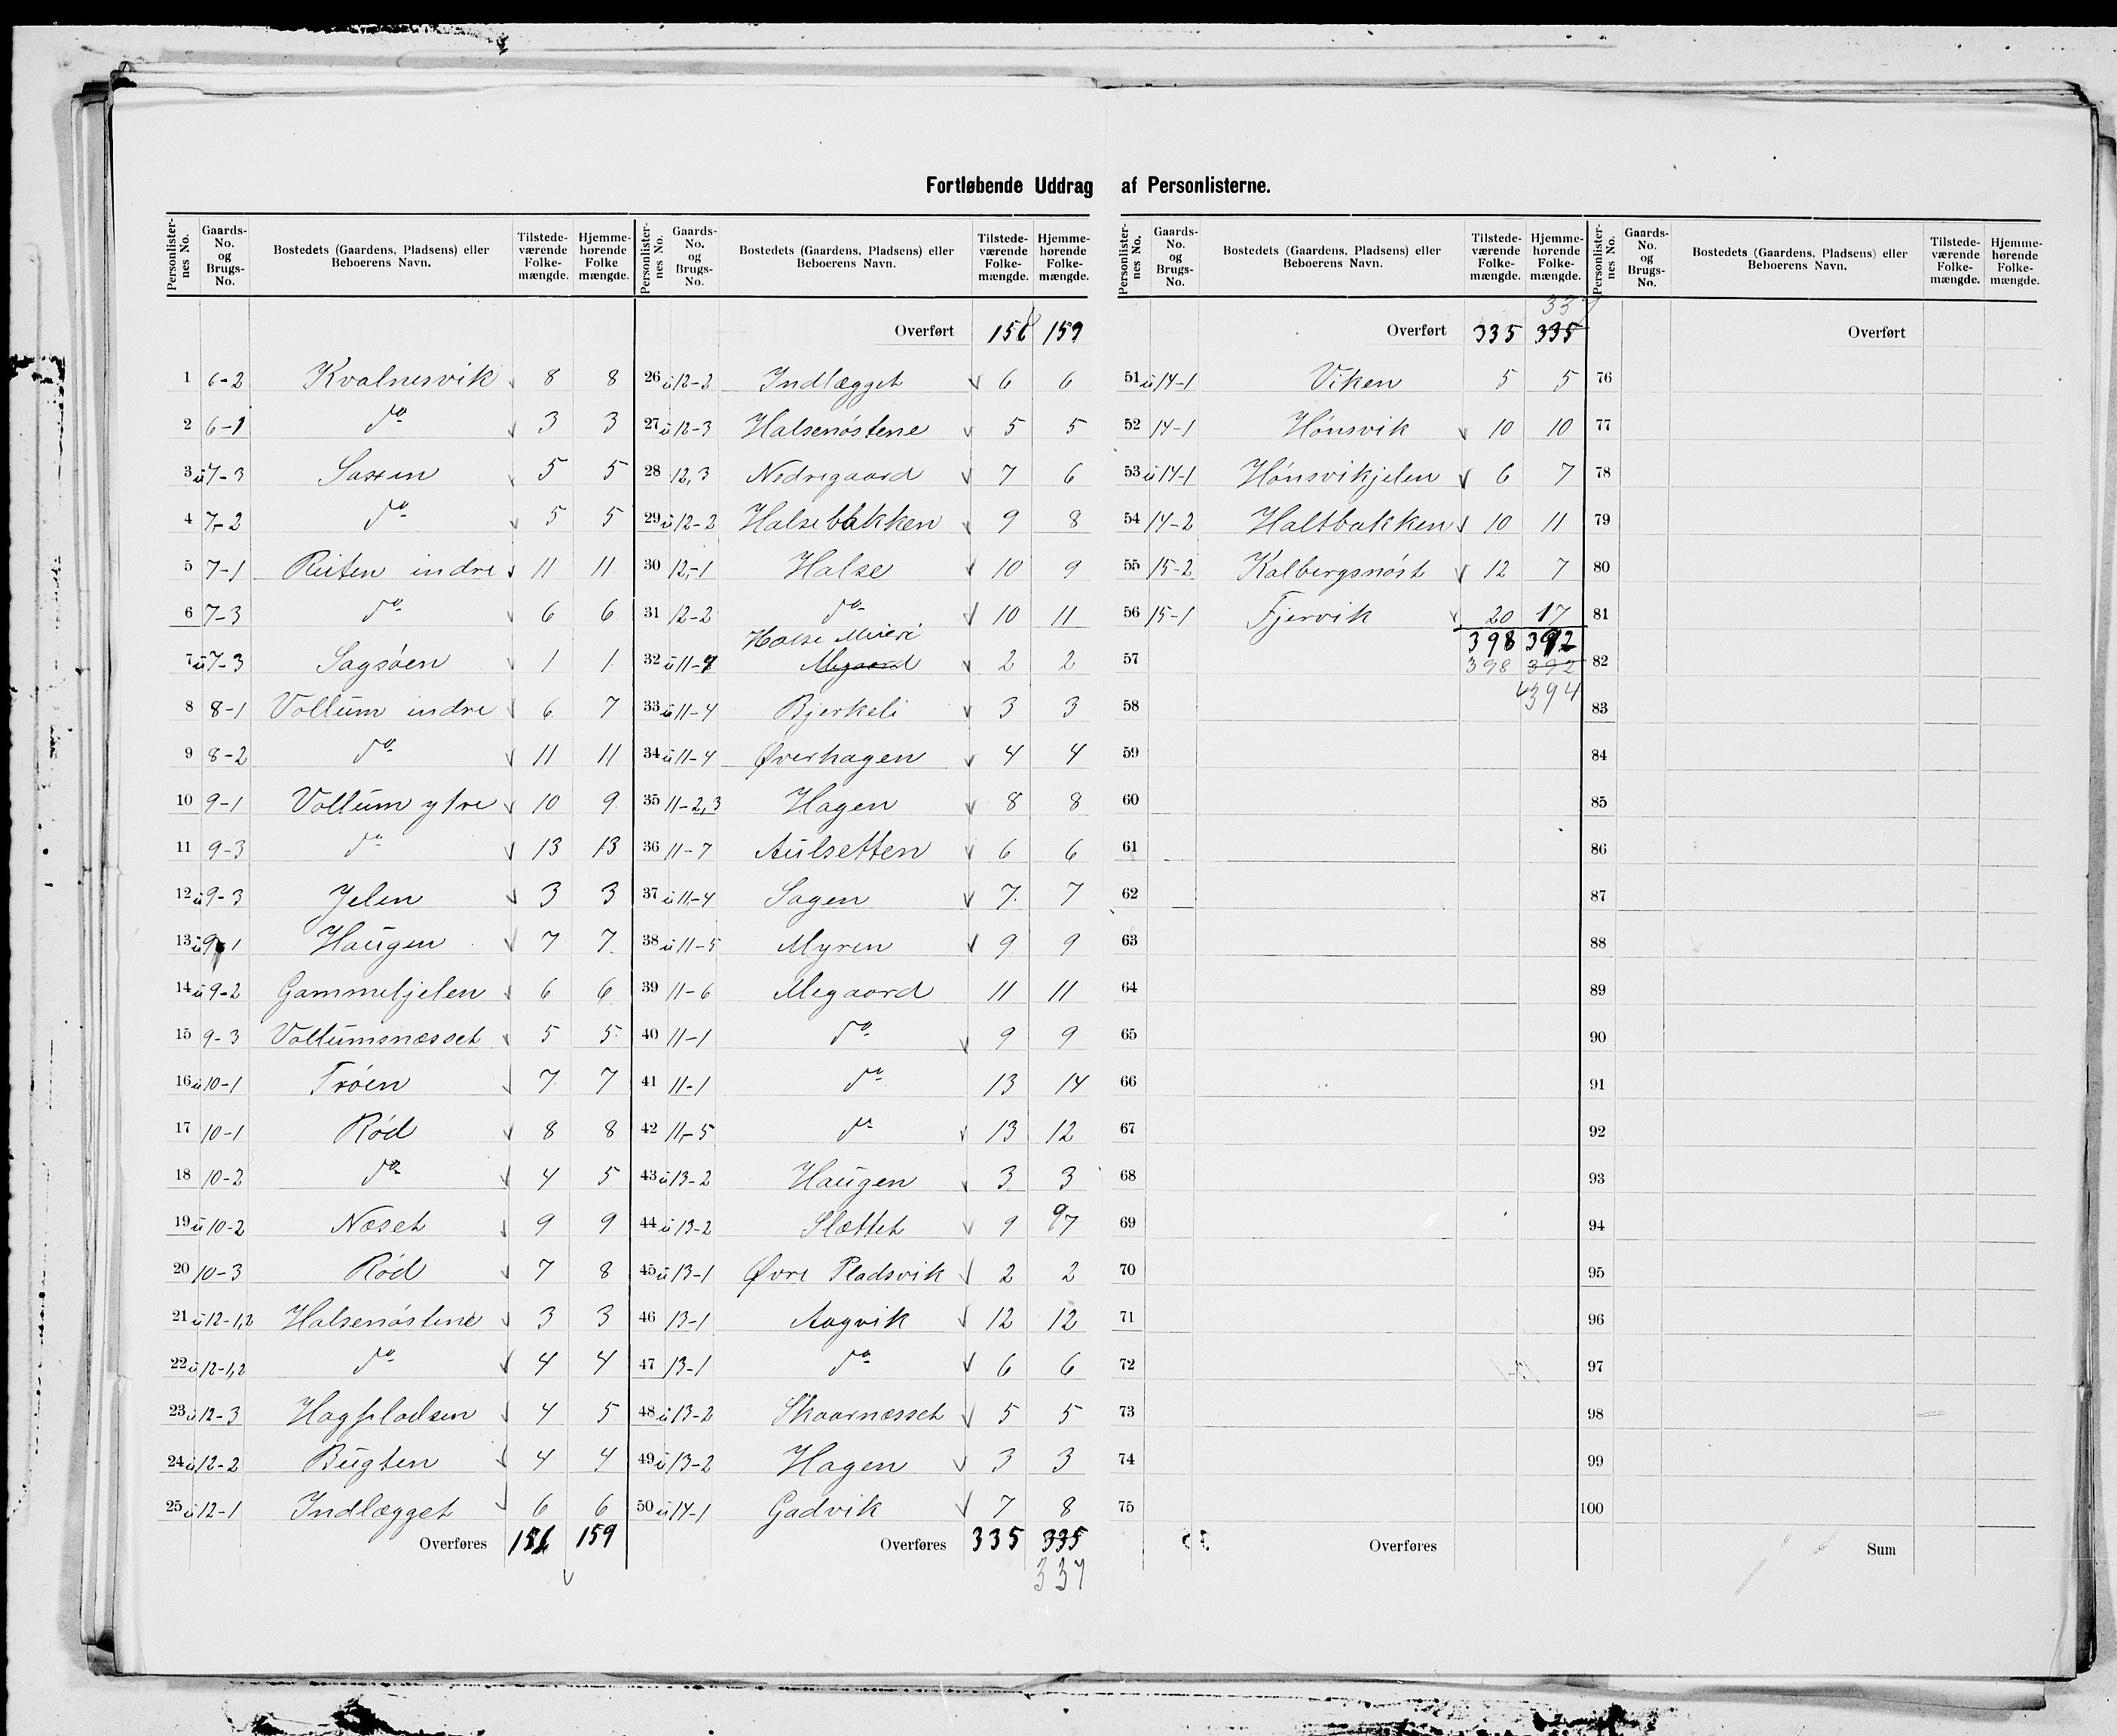 Fortløbende Uddrag af Personlisterne.
Personlisternes No. Gaards-No. og Brugs-No. Bostedets (Gaardens, Pladsens) eller Beboerens Navn. Tilstedeværende Folkemængde. Hjemmehørende Folkemængde.
1 6-2 Kvalnesvik 8 8
2 6-1 do 3 3
3 u 7-3 Saxen 5 5
4 7-2 do 5 5
5 7-1 Reiten indre 11 11
6 7-3 do 6 6
7 u 7-3 Sagsøen 1 1
8 8-1 Vollum indre 6 7
9 8-2 do 11 11
10 9-1 Vollum ytre 10 9
11 9-3 do 13 13
12 u 9-3 Jelen 3 3
13 u 9-1 Haugen 7 7
14 u 9-2 Gammeljelen 6 6
15 9-3 Vollumsnæsset 5 5
16 u 10-1 Trøen 7 7
17 10-1 Rød 8 8
18 10-2 do 4 5
19 u 10-2 Næset 9 9
20 10-3 Rød 7 8
21 u 12-1,2 Halsenøstene 3 3
22 u 12-1,2 do 4 4
23 u 12-3 Hagpladsen 4 5
24 u 12-2 Bugten 4 4
25 u 12-1 Indlægget 6 6
Overføres 159
Personlisternes No. Gaards-No. og Brugs-No. Bostedets (Gaardens, Pladsens) eller Beboerens Navn. Tilstedeværende Folkemængde. Hjemmehørende Folkemængde.
Overført 159
26 u 12-2 Indlægget 6 6
27 u 12-3 Halsenøstene 5 5
28 12,3 Nedregaard 7 6
29 u 12-2 Halsebakken 9 8
30 12-1 Halse 10 9
31 12-2 do 10 11
Halse Meieri
32 u 11-9 Megaard 2 2
33 u 11-4 Bjerkeli 3 3
34 u 11-4 Øverhagen 4 4
35 11-2,3 Hagen 8 8
36 11-7 Aulsetten 6 6
37 u 11-4 Sagen 7 7
38 u 11-5 Myren 9 9
39 11-6 Megaard 11 11
40 11-1 do 9 9
41 11-1 do 13 14
42 11-5 do 13 12
43 u 13-2 Haugen 3 3
44 u 13-2 Slættet 9 9 7
45 u 13-1 Øvre Pladsvik 2 2
46 13-1 Aagvik 12 12
47 13-1 do 6 6
48 u 13-2 Skaarnæsset 5 5
49 u 13-2 Hagen 3 3
50 u 14-1 Gadvik 7 8
Overføres 335 335
337
Personlisternes No. Gaards-No. og Brugs-No. Bostedets (Gaardens, Pladsens) eller Beboerens Navn. Tilstedeværende Folkemængde. Hjemmehørende Folkemængde.
337
Overført 335 335
51 u 14-1 Viken 5 5
52 14-1 Hønsvik 10 10
53 u 14-1 Hønsvikjelen 6 7
54 14-2 Haltbakken 10 11
55 15-2 Kalbergsnøst 12 7
56 15-1 Fjervik 20 17
398 392
57 398 392
394
58
59
60
61
62
63
64
65
66
67
68
69
70
71
72
73
74
75
Overføres
Personlisternes No. Gaards-No. og Brugs-No. Bostedets (Gaardens, Pladsens) eller Beboerens Navn. Tilstedeværende Folkemængde. Hjemmehørende Folkemængde.
Overført
76
77
78
79
80
81
82
83
84
85
86
87
88
89
90
91
92
93
94
95
96
97
98
99
100
Sum